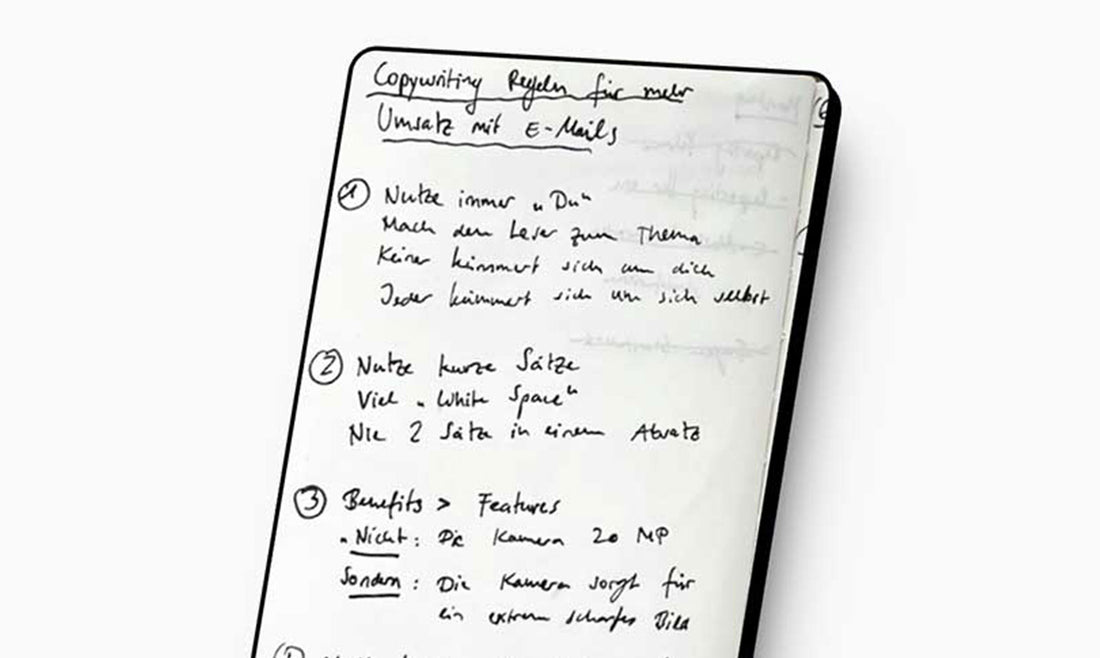 Copywriting Regeln für mehr
Umsatz mit E-Mails
① Nutze immer „Du“
Mach den Leser zum Thema
Keiner kümmert sich um dich
Jeder kümmert sich um sich selbst
② Nutze kurze Sätze
Viel „White Space“
Nie 2 Sätze in einem Absatz
③ Benefits > Features
„Nicht: Die Kamera 20 MP
Sondern: Die Kamera sorgt für
ein extrem scharfes Bild